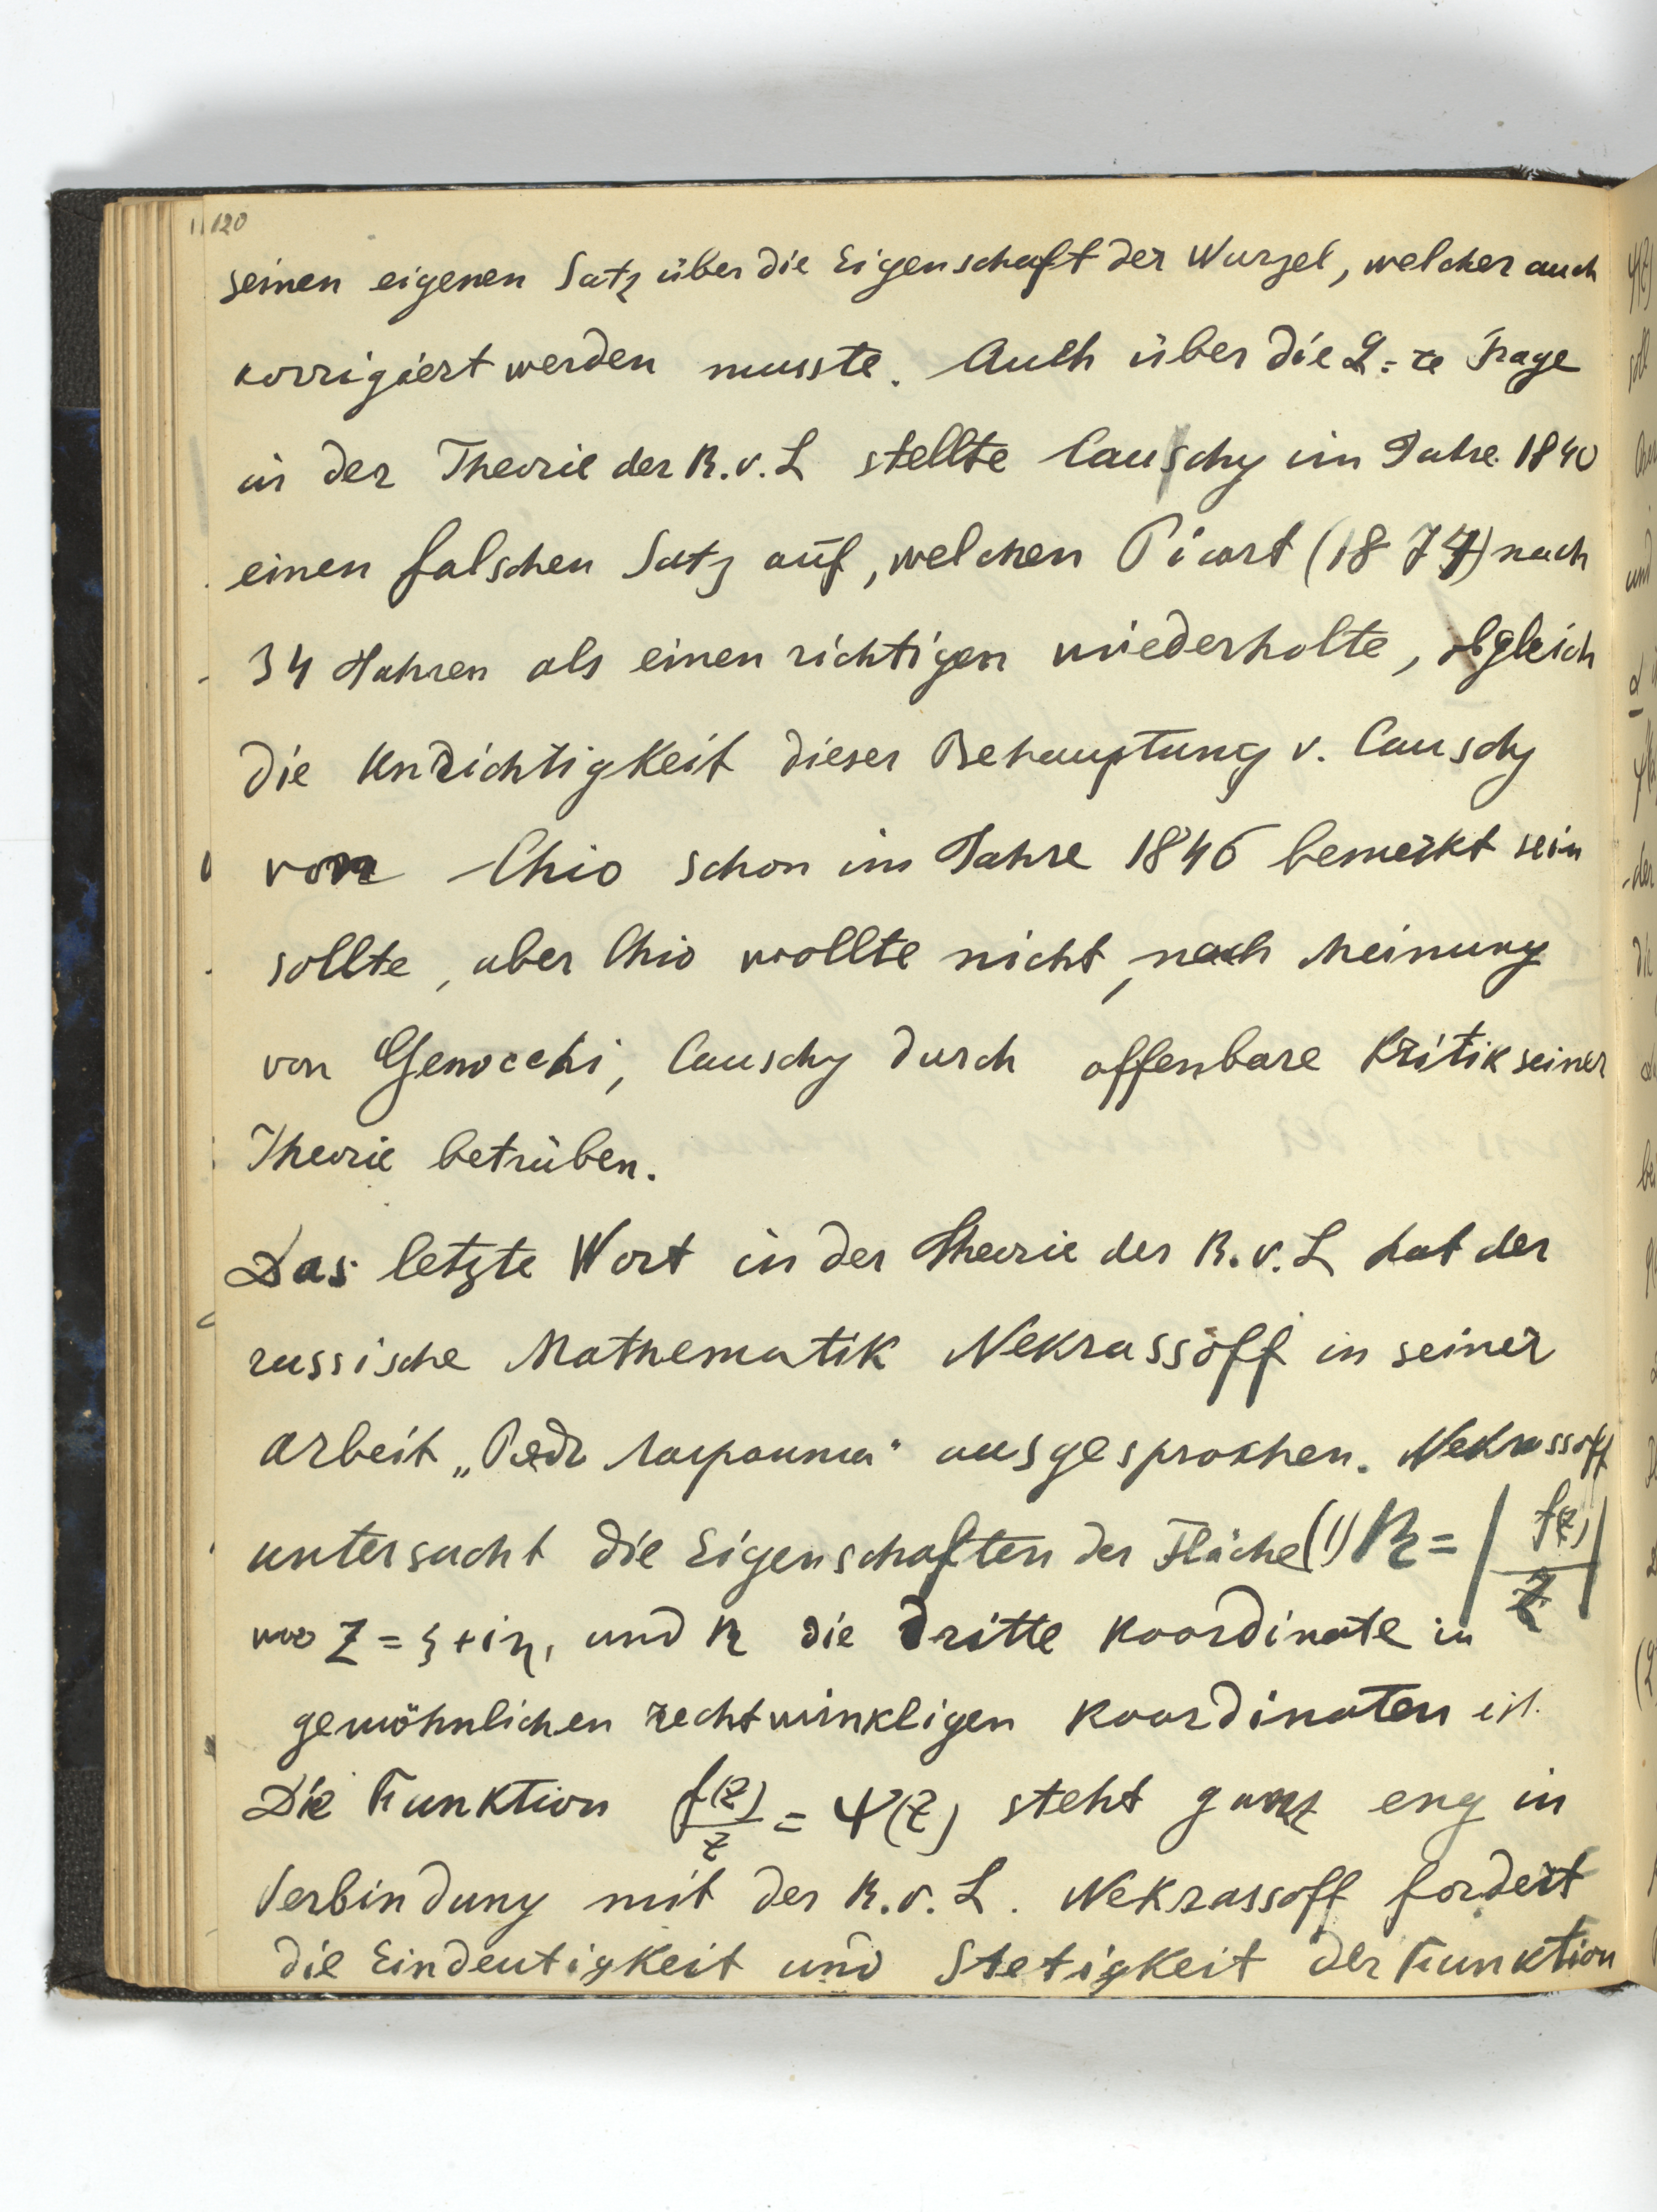 120
seinen eigenen Satz über die Eigenschaft der Wurzel, welcher auch
korrigiert werden musste. Auch über die 2-te Frage
in der Theorie der R.v.L stellte Causchy im Jahre 1840
einen falschen Satz auf, welchen Picart (1874) nach
34 Jahren als einen richtigen wiederholte, obgleich
die Unrichtigkeit dieser Behauptung v. Causchy
von Chio schon im Jahre 1846 bemerkt sein
sollte, aber Chio wollte nicht, nach Meinung
von Genocchi, Causchy durch offenbare Kritik seiner
Theorie betrüben.
Das letzte Wort in der Theorie der R.v.L hat der
russische Mathematik Nekrassoff in seiner
Arbeit „Рядъ Лагранжа“ ausgesprochen. Nekrassoff
untersucht die Eigenschaften der Fläche (1) R = |f(z)/z|
wo z = ξ + iη, und R die dritte Koordinate in
gewöhnlichen rechtwinkligen Koordinaten ist.
Die Funktion f(z)/z = Ψ(z) steht ganz eng in
Verbindung mit der R.v.L. Nekrassoff fordert
die Eindeutigkeit und Stetigkeit der Funktion